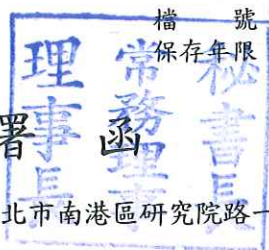 檔 號
保存年限
理事長
常務理事
秘書長
署 函
北市南港區研究院路一